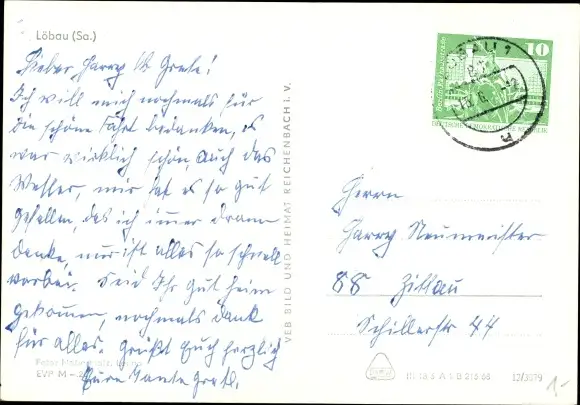 Löbau (Sa.)
Lieber Harry lb Grete!
Ich will mich nochmals für
die schöne Fahrt bedanken, es
war wirklich schön, auch das
Wetter, mir hat es so gut
gefallen, das ich immer dran
denke, nur ist alles so schnell
vorbei. Seid Ihr gut heim
gekommen, nochmals dank
für alles. Grüßt Euch herzlich
Eure Tante Gretl.
EVP M
VEB BILD UND HEIMAT REICHENBACH I. V.
10
DEUTSCHE DEMOKRATISCHE REPUBLIK
Herrn
Harry Neumeister
88 Zittau
Schillerstr 44
III/18/6 A 1/B 216/68
12/3579
1-